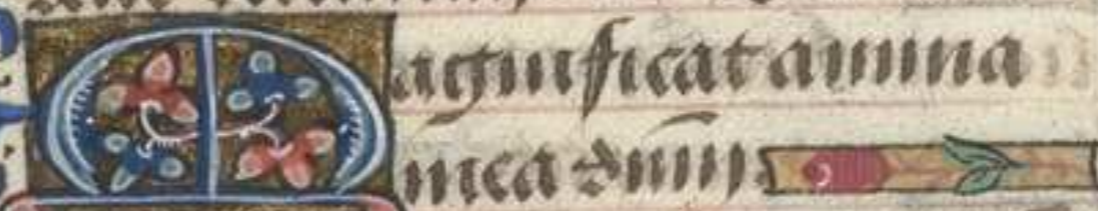 Magnificat anima
mea dnm